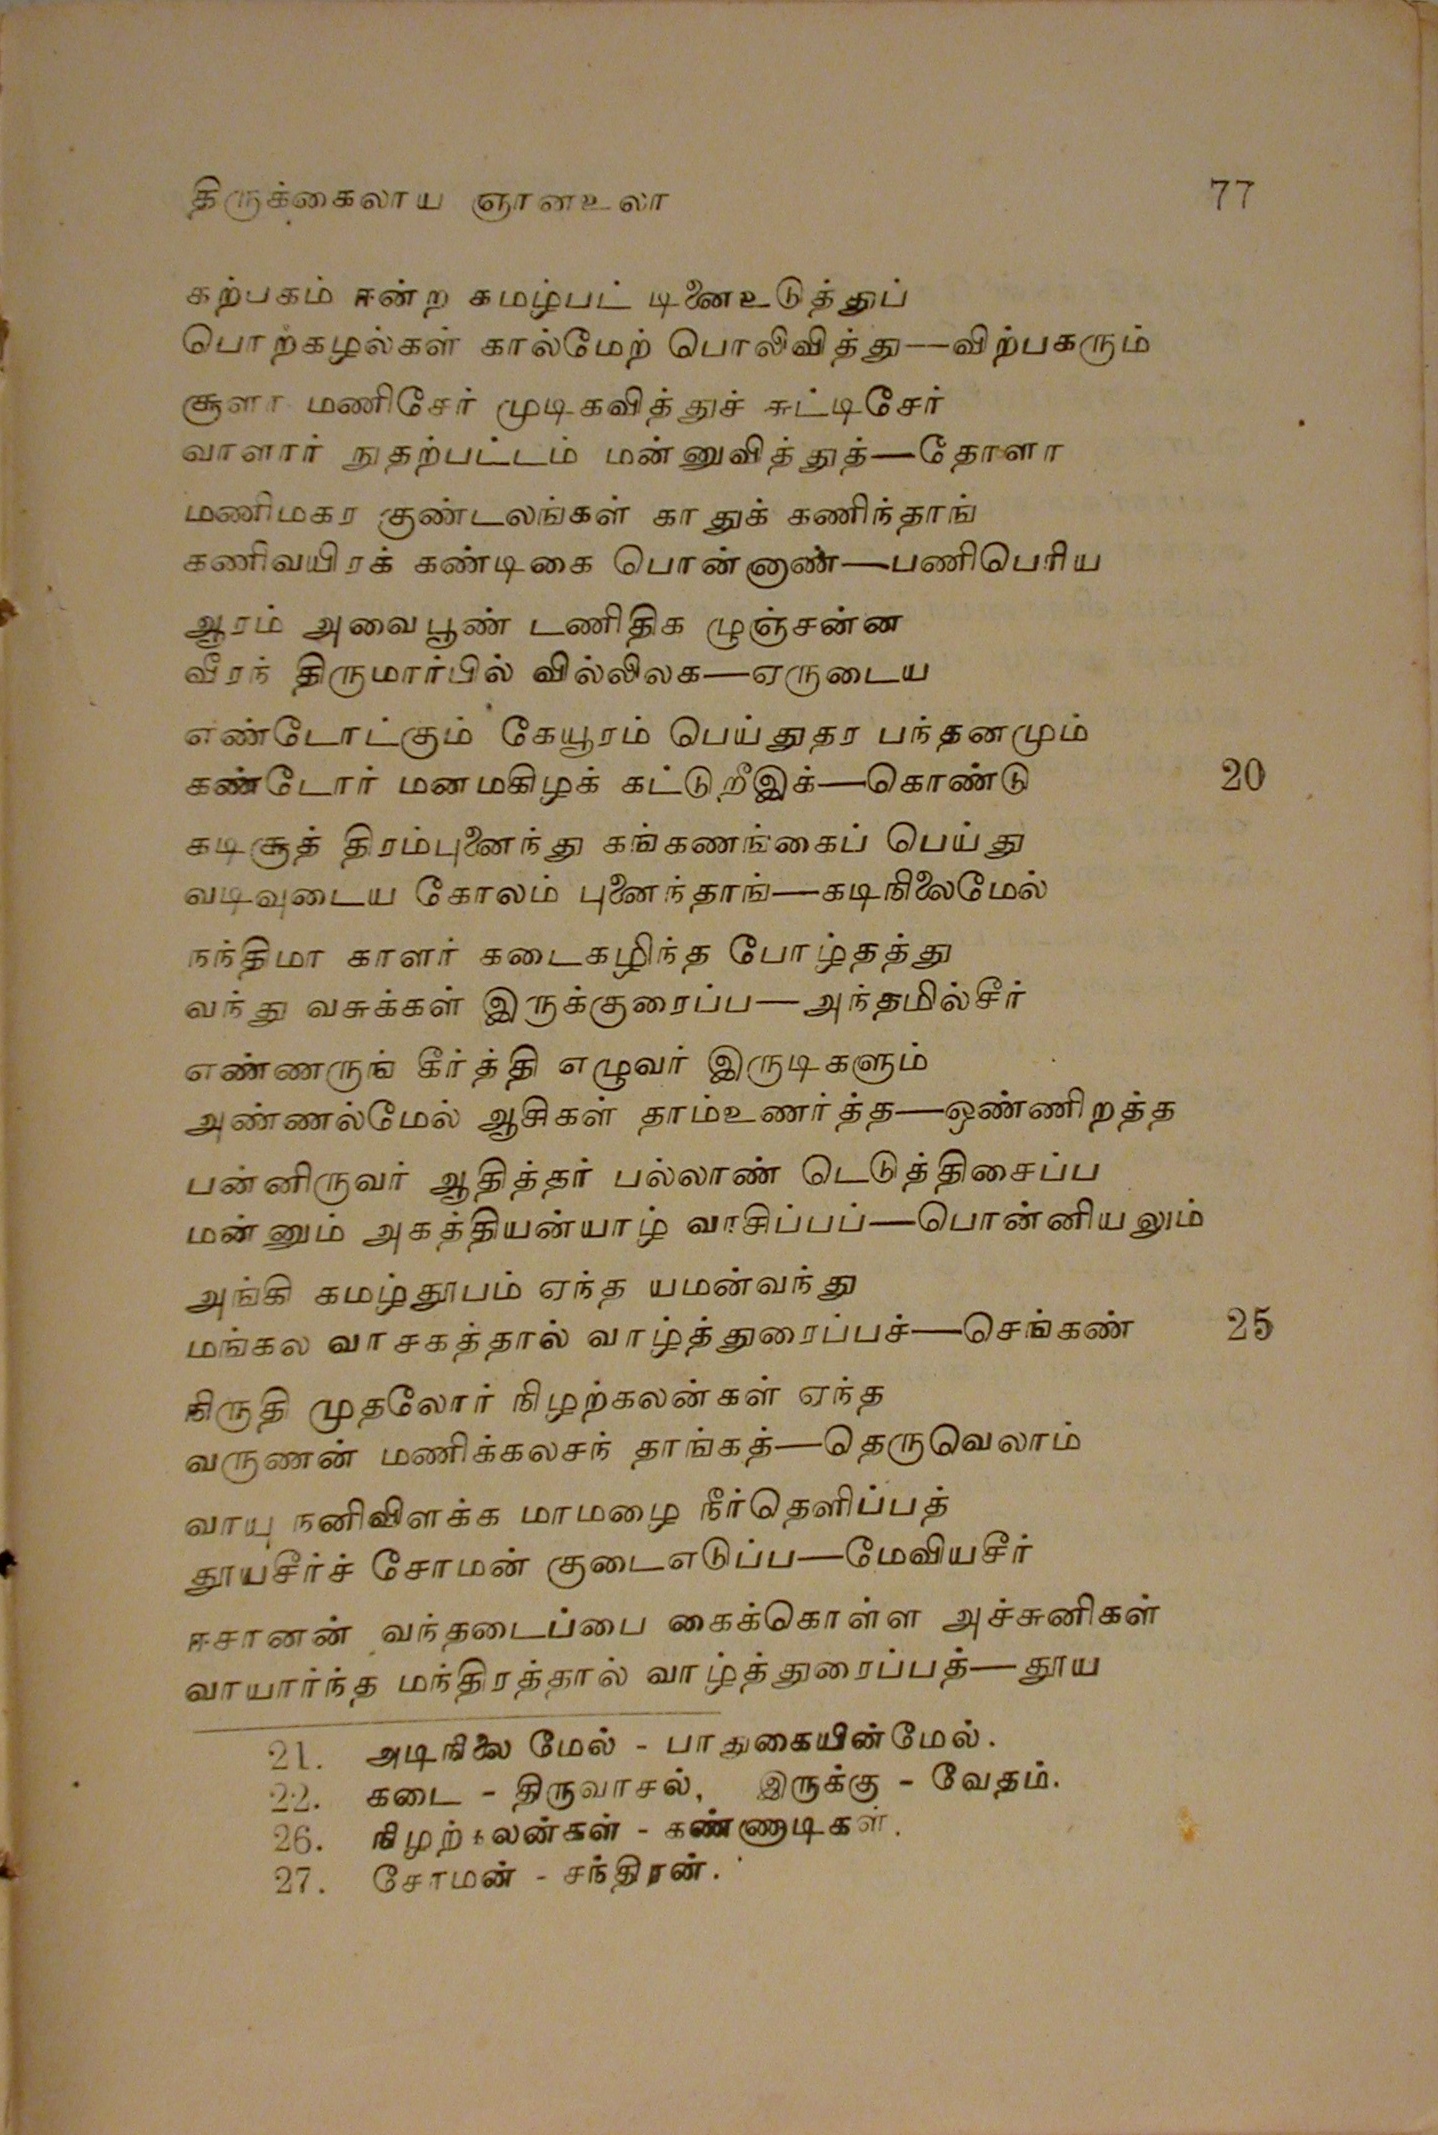 திருக்கைலாய ஞானஉலா 77
கற்பகம் ஈன்ற கமழ்பட் டினைஉடுத்துப்
பொற்கழல்கள் கால்மேற் பொலிவித்து—விற்பகரும்
சூளா மணிசேர் முடிகவித்துச் சுட்டிசேர்
வாளார் நுதற்பட்டம் மன்னுவித்துத்—தோளா
மணிமகர குண்டலங்கள் காதுக் கணிந்தாங்
கணிவயிரக் கண்டிகை பொன்னாண்—பணிபெரிய
ஆரம் அவைபூண் டணிதிக ழுஞ்சன்ன
வீரந் திருமார்பில் வில்லிலக—ஏருடைய
எண்டோட்கும் கேயூரம் பெய்துதர பந்தனமும்
கண்டோர் மனமகிழக் கட்டுறீஇக்—கொண்டு 20
கடிசூத் திரம்புனைந்து கங்கணங்கைப் பெய்து
வடிவுடைய கோலம் புனைந்தாங்—கடிநிலைமேல்
நந்திமா காளர் கடைகழிந்த போழ்தத்து
வந்து வசுக்கள் இருக்குரைப்ப—அந்தமில்சீர்
எண்ணருங் கீர்த்தி எழுவர் இருடிகளும்
அண்ணல்மேல் ஆசிகள் தாம்உணர்த்த—ஒண்ணிறத்த
பன்னிருவர் ஆதித்தர் பல்லாண் டெடுத்திசைப்ப
மன்னும் அகத்தியன்யாழ் வாசிப்பப்—பொன்னியலும்
அங்கி கமழ்தூபம் ஏந்த யமன்வந்து
மங்கல வாசகத்தால் வாழ்த்துரைப்பச்—செங்கண் 25
நிருதி முதலோர் நிழற்கலன்கள் ஏந்த
வருணன் மணிக்கலசந் தாங்கத்—தெருவெலாம்
வாயு நனிவிளக்க மாமழை நீர்தெளிப்பத்
தூயசீர்ச் சோமன் குடைஎடுப்ப—மேவியசீர்
ஈசானன் வந்தடைப்பை கைக்கொள்ள அச்சுனிகள்
வாயார்ந்த மந்திரத்தால் வாழ்த்துரைப்பத்—தூய
21. அடிநிலை மேல் - பாதுகையின்மேல்.
22. கடை - திருவாசல், இருக்கு - வேதம்.
26. நிழற்கலன்கள் - கண்ணாடிகள்.
27. சோமன் - சந்திரன்.